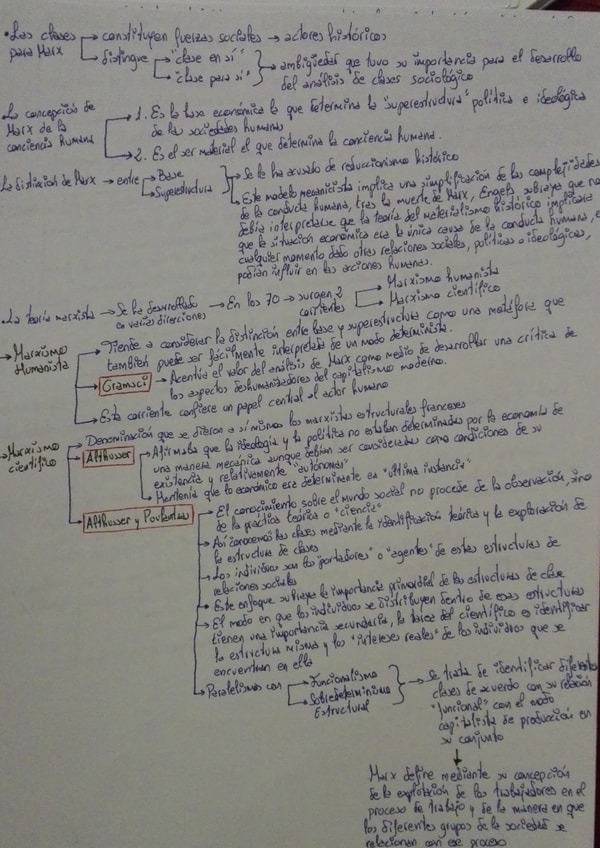 • Las clases → constituyen fuerzas sociales → actores históricos
para Marx → distingue → "clase en sí"
→ "clase para sí" → ambigüedad que tuvo su importancia para el desarrollo
del análisis de clases sociológico
La concepción de → 1. Es la base económica la que determina la "superestructura" política e ideológica
Marx de la de las sociedades humanas
conciencia humana → 2. Es el ser material el que determina la conciencia humana.
La distinción de Marx → entre → Base → Se le ha acusado de reduccionismo histórico
→ Superestructura → Este modelo mecanicista implica una simplificación de las complejidades
de la conducta humana, tras la muerte de Marx, Engels subraya que no
debía interpretarse que la teoría del materialismo histórico implicara
que la situación económica era la única causa de la conducta humana, en
cualquier momento dado otras relaciones sociales, políticas o ideológicas,
podían influir en las acciones humanas.
La teoría marxista → Se ha desarrollado → En los 70 → surgen 2 → Marxismo humanista
en varias direcciones corrientes → Marxismo científico
→ Marxismo → Tiende a considerar la distinción entre base y superestructura como una metáfora que
Humanista también puede ser fácilmente interpretada de un modo determinista.
→ Gramsci → Acentúa el valor del análisis de Marx como medio de desarrollar una crítica de
los aspectos deshumanizadores del capitalismo moderno.
→ Esta corriente confiere un papel central al actor humano
→ Marxismo → Denominación que se dieron a sí mismos los marxistas estructurales franceses
científico → Althusser → Afirmaba que la ideología y la política no estaban determinadas por la economía de
una manera mecánica aunque debían ser consideradas como condiciones de su
existencia y relativamente "autónomas"
→ Mantenía que lo económico era determinante en "última instancia"
→ Althusser y Poulantzas → El conocimiento sobre el mundo social no procede de la observación, sino
de la práctica teórica o "ciencia"
→ Así conocemos las clases mediante la identificación teórica y la exploración de
la estructura de clases
→ Los individuos son los "portadores" o "agentes" de estas estructuras de
relaciones sociales
→ Este enfoque subraya la importancia primordial de las estructuras de clase
→ El modo en que los individuos se distribuyen dentro de esas estructuras
tienen una importancia secundaria, la tarea del científico es identificar
la estructura misma y los "intereses reales" de los individuos que se
encuentran en ella
→ Paralelismos con → Funcionalismo
→ Sobredeterminismo
Estructural → Se trata de identificar diferentes
clases de acuerdo con su relación
"funcional" con el modo
capitalista de producción en
su conjunto
↓
Marx define mediante su concepción
de la explotación de los trabajadores en el
proceso de trabajo y de la manera en que
los diferentes grupos de la sociedad se
relacionan con ese proceso